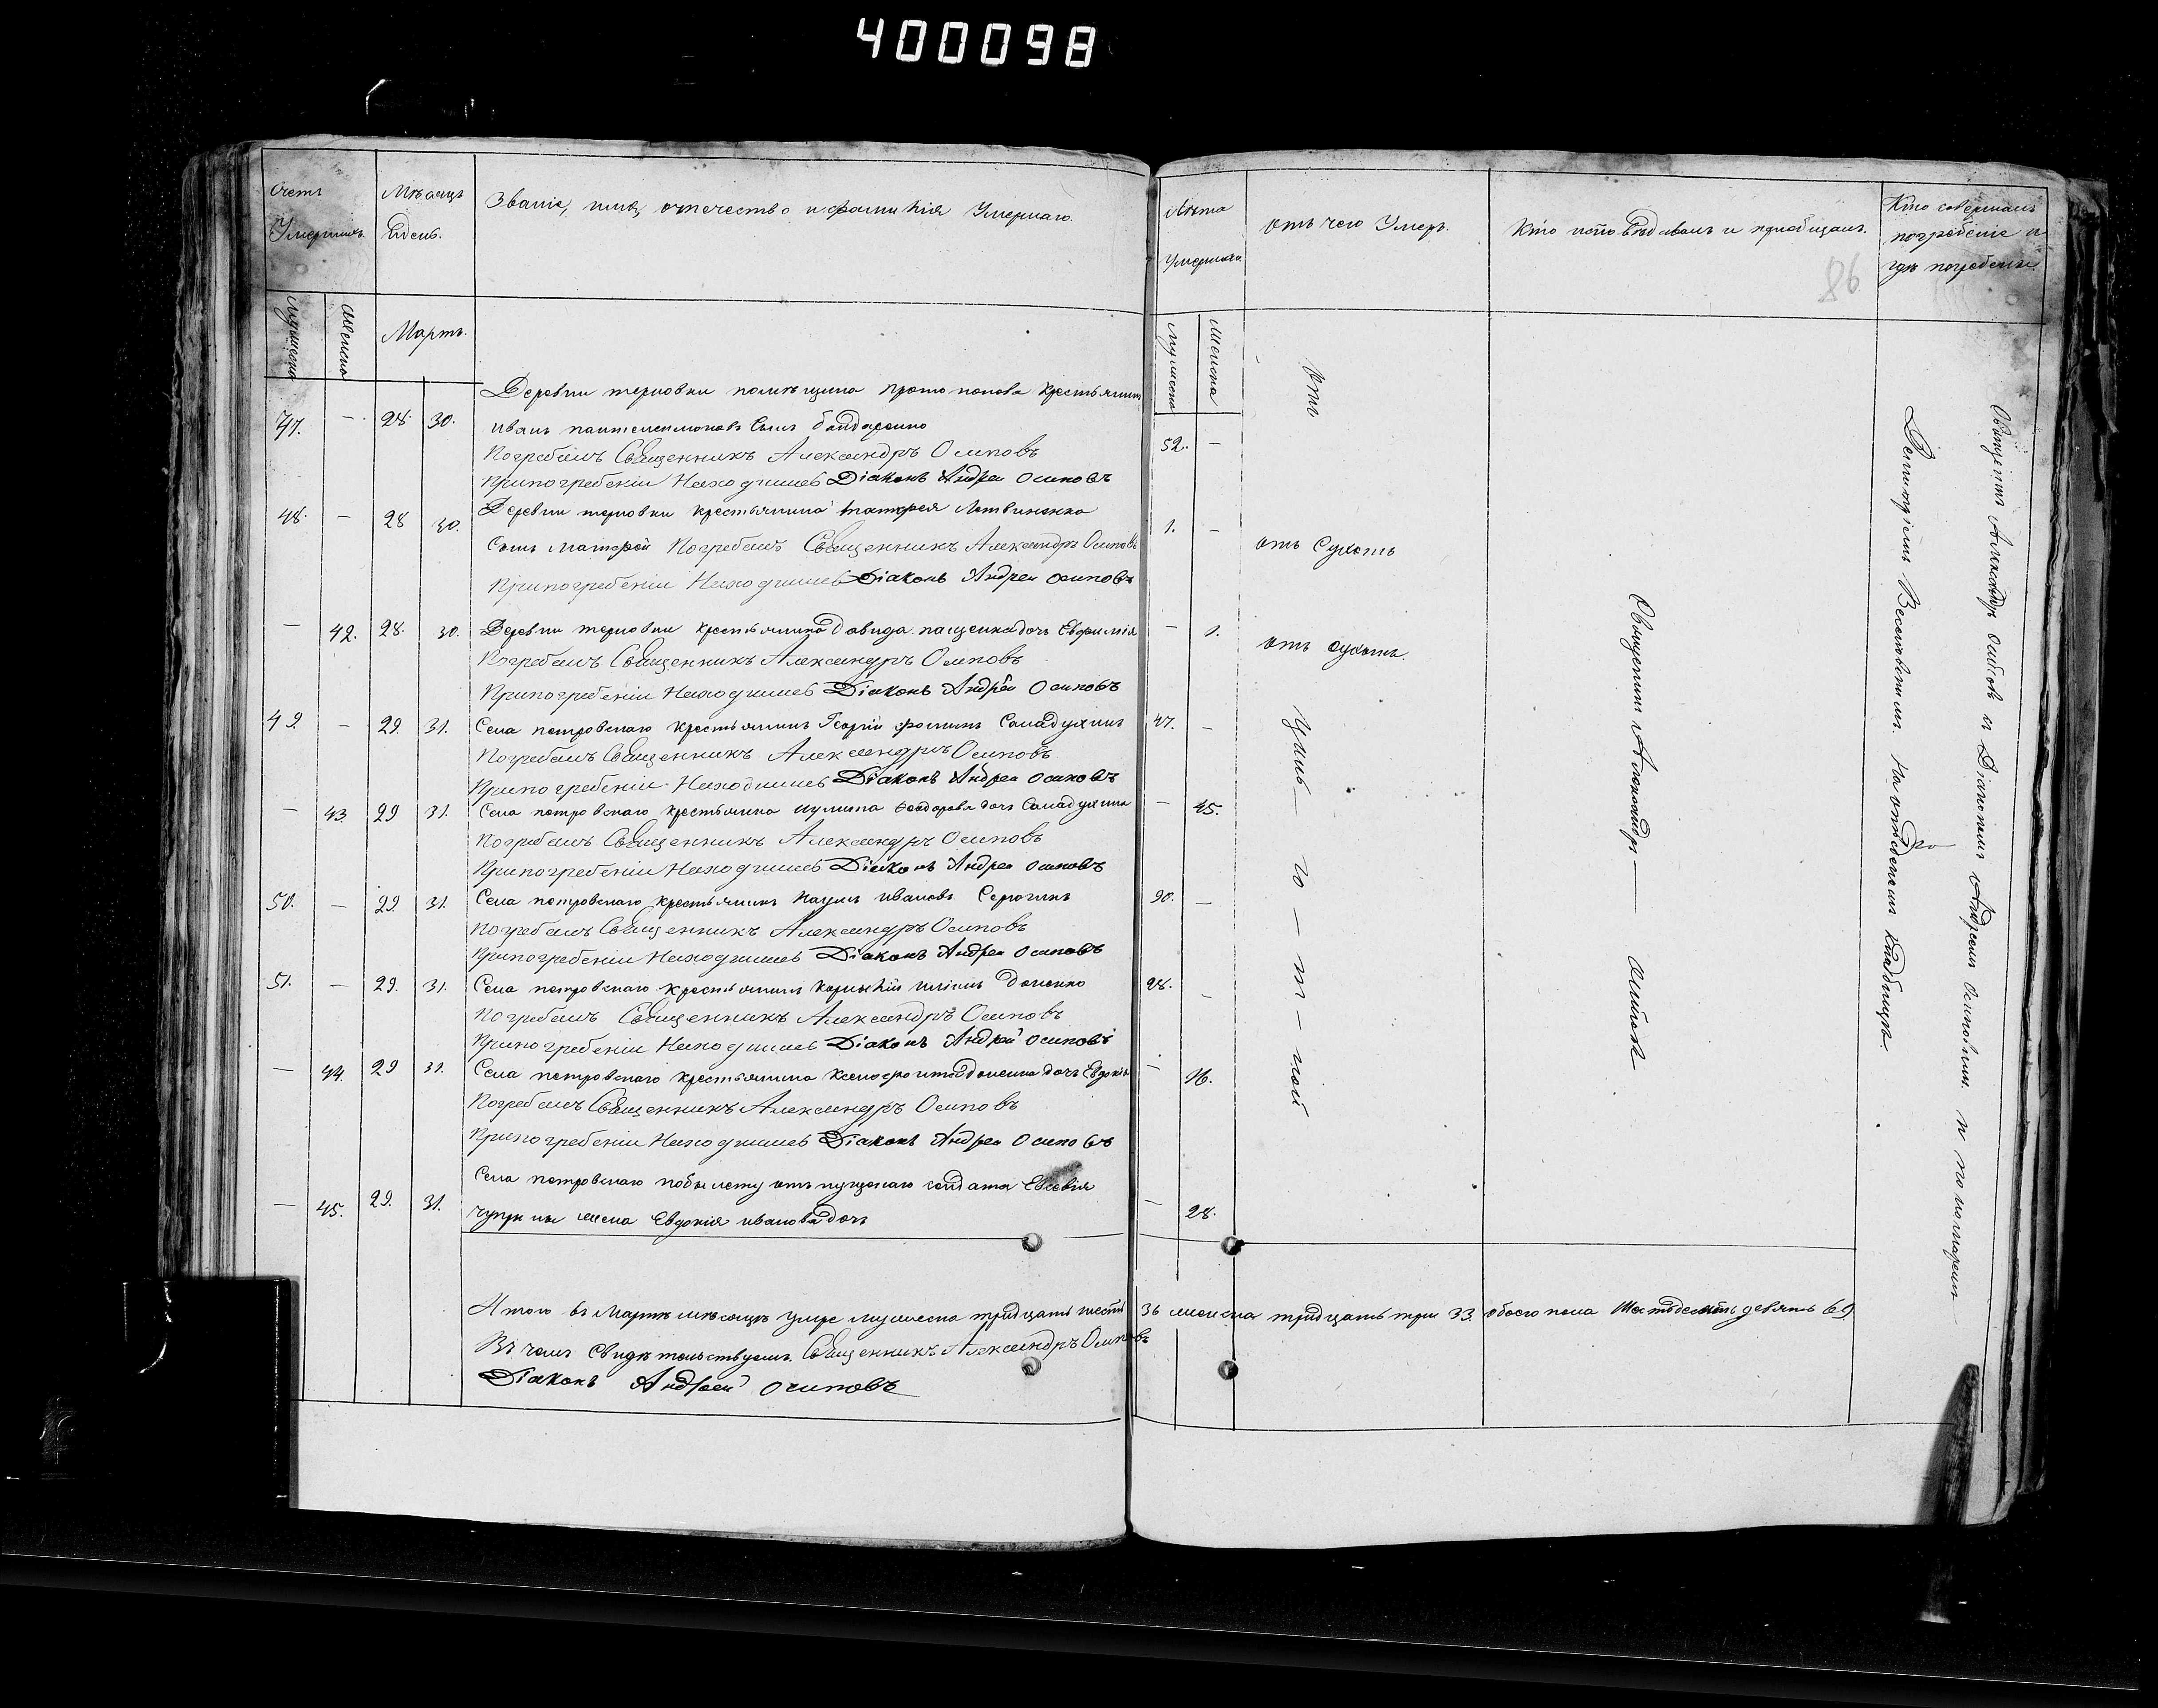 400098
Счетъ Умершихъ.
Мѣсяцъ и день.
Званіе, имя, отечество и фамилія Умершаго.
Лѣта умершаго
отъ чего Умеръ.
Кто исповѣдывалъ и пріобщалъ.
Кто совершалъ погребеніе и гдѣ погребены.
86
Мужеска
Женска
Мартъ.
Мужеска
Женска
Деревни терновки помѣщика протопопова крестьянинъ
47. — 28. 30. иванъ пантелеимоновъ сынъ бондаренко 52. —
Погребалъ Священникъ Александръ Осиповъ
При погребеніи Находился Діаконъ Андрей Осиповъ
48. — 28 30. Деревни терновки крестьянина Литвиненка 1. —
сынъ Погребалъ Священникъ Александръ Осиповъ отъ Сухотъ
При погребеніи Находился Діаконъ Андрей Осиповъ
— 42. 28. 30. Деревни терновки крестьянина Давида пащенка дочь Евфимія — 1. отъ сухотъ.
Погребалъ Священникъ Александръ Осиповъ
При погребеніи Находился Діаконъ Андрей Осиповъ
49. — 29. 31. Села петровскаго крестьянинъ Георгій фоминъ 47. —
Погребалъ Священникъ Александръ Осиповъ
При погребеніи Находился Діаконъ Андрей Осиповъ
— 43. 29 31. Села петровскаго крестьянка феодорова дочь — 45.
Погребалъ Священникъ Александръ Осиповъ
При погребеніи Находился Діаконъ Андрей Осиповъ
50. — 29. 31. Села петровскаго крестьянинъ Наумъ ивановъ 90. —
Погребалъ Священникъ Александръ Осиповъ
При погребеніи Находился Діаконъ Андрей Осиповъ
51. — 29. 31. Села петровскаго крестьянинъ Корнилій Доценко 28. —
Погребалъ Священникъ Александръ Осиповъ
При погребеніи Находился Діаконъ Андрей Осиповъ
— 44. 29 31. Села петровскаго крестьянина Ксенофонта доценка дочь Евдокія — 16.
Погребалъ Священникъ Александръ Осиповъ
При погребеніи Находился Діаконъ Андрей Осиповъ
Села петровскаго по билету отпущенаго солдата Евсевія
— 45. 29. 31. жена Евдокія иванова дочь — 28.
отъ Цин—го—т—ной
Священникъ Александръ — Осиповъ
Священникъ Александръ Осиповъ съ Діакономъ Андреемъ Осиповымъ. и пономаремъ
Дементіемъ На отведеномъ кладбищѣ.
Итого въ Мартѣ мѣсяцѣ умре мужеска тридцать шесть 36 женска тридцать три 33. обоего пола Шестьдесятъ девять 69.
Въ чемъ Свидѣтельствуемъ. Священникъ Александръ Осиповъ
Діаконъ Андрей Осиповъ